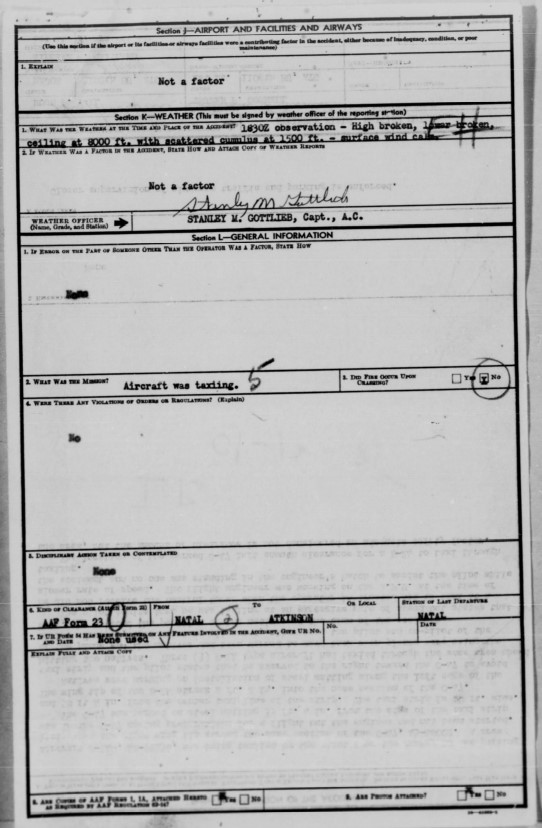 Section J—AIRPORT AND FACILITIES AND AIRWAYS
(Use this section if the airport or its facilities or airways facilities were a contributing factor in the accident, either because of inadequacy, condition, or poor
maintenance)
1. EXPLAIN
Not a factor
Section K—WEATHER (This must be signed by weather officer of the reporting station)
1. WHAT WAS THE WEATHER AT THE TIME AND PLACE OF THE ACCIDENT? 1830Z observation - High broken, lower broken,
ceiling at 8000 ft. with scattered cumulus at 1500 ft. - surface wind calm.
2. IF WEATHER WAS A FACTOR IN THE ACCIDENT, STATE HOW AND ATTACH COPY OF WEATHER REPORTS
Not a factor
Stanley M Gottlieb
WEATHER OFFICER
(Name, Grade, and Station)
STANLEY M. GOTTLIEB, Capt., A.C.
Section L—GENERAL INFORMATION
1. IF ERROR ON THE PART OF SOMEONE OTHER THAN THE OPERATOR WAS A FACTOR, STATE HOW
None
2. WHAT WAS THE MISSION? Aircraft was taxiing. 5
3. DID FIRE OCCUR UPON
CRASHING?
Yes X No
4. WERE THERE ANY VIOLATIONS OF ORDERS OR REGULATIONS? (Explain)
No
5. DISCIPLINARY ACTION TAKEN OR CONTEMPLATED
None
6. KIND OF CLEARANCE (Form 23) FROM TO OR LOCAL STATION OF LAST DEPARTURE
AAF Form 23 NATAL 2 ATKINSON NATAL
7. IF UR FORM 54 HAS BEEN SUBMITTED ON ANY FEATURE INVOLVED IN THE ACCIDENT, GIVE UR NO. No. DATE
AND DATE None used
EXPLAIN FULLY AND ATTACH COPY
8. ARE COPIES OF AAF FORMS 1, 1A, ATTACHED HERETO
AS REQUIRED BY AAF REGULATION
X Yes No
9. ARE PHOTOS ATTACHED?
X Yes No